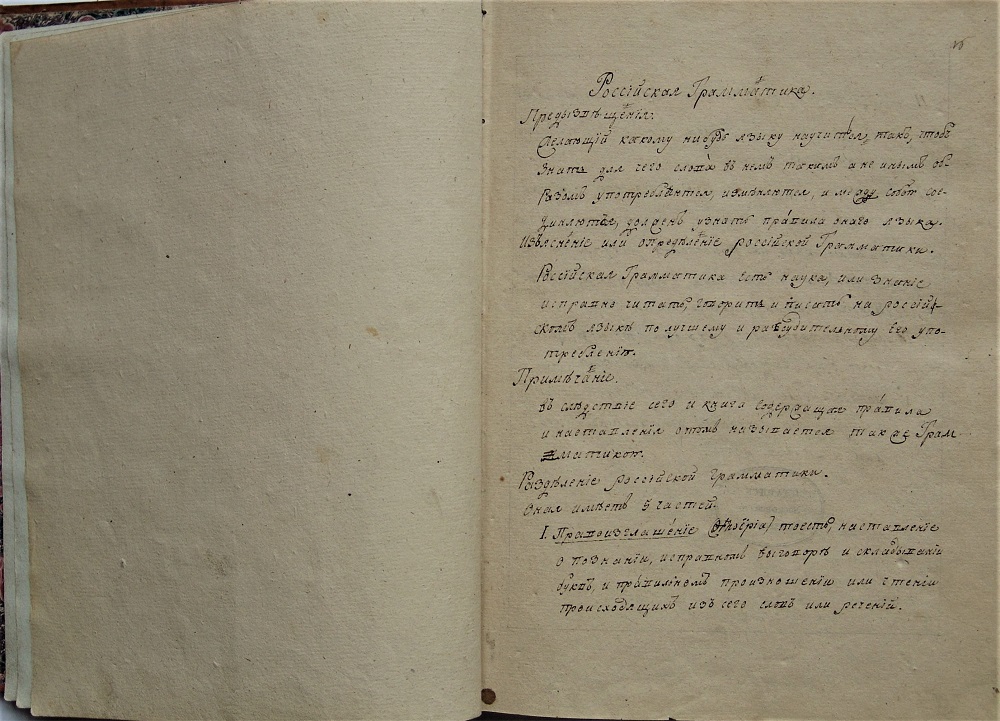 Россійская Грамматика.
Предызвѣщенія.
Желающій какому нибудь языку научится, такъ, чтобъ
знать для чего слова въ немъ такимъ а не инымъ об-
разомъ употребляются, измѣняются, и между собою сое-
диняются, долженъ узнать правила онаго языка.
Изъясненіе или опредѣленіе россійской Грамматики.
Россійская Грамматика есть наука, или знаніе
исправно читать, говорить и писать на россій-
скомъ языкѣ по лучшему и разсудительному его упо-
требленію.
Примѣчаніе.
въ слѣдствіе сего и книга содержащая правила
и наставленія о томъ называется также Грам
матикою.
Раздѣленіе россійской грамматики.
Оная имѣетъ 5 частей.
I. Правоизглашеніе тоесть, наставленіе
о познаніи, исправномъ выговорѣ и складываніи
буквъ, и правильномъ произношеніи или чтеніи
происходящихъ изъ сего словъ или реченій.